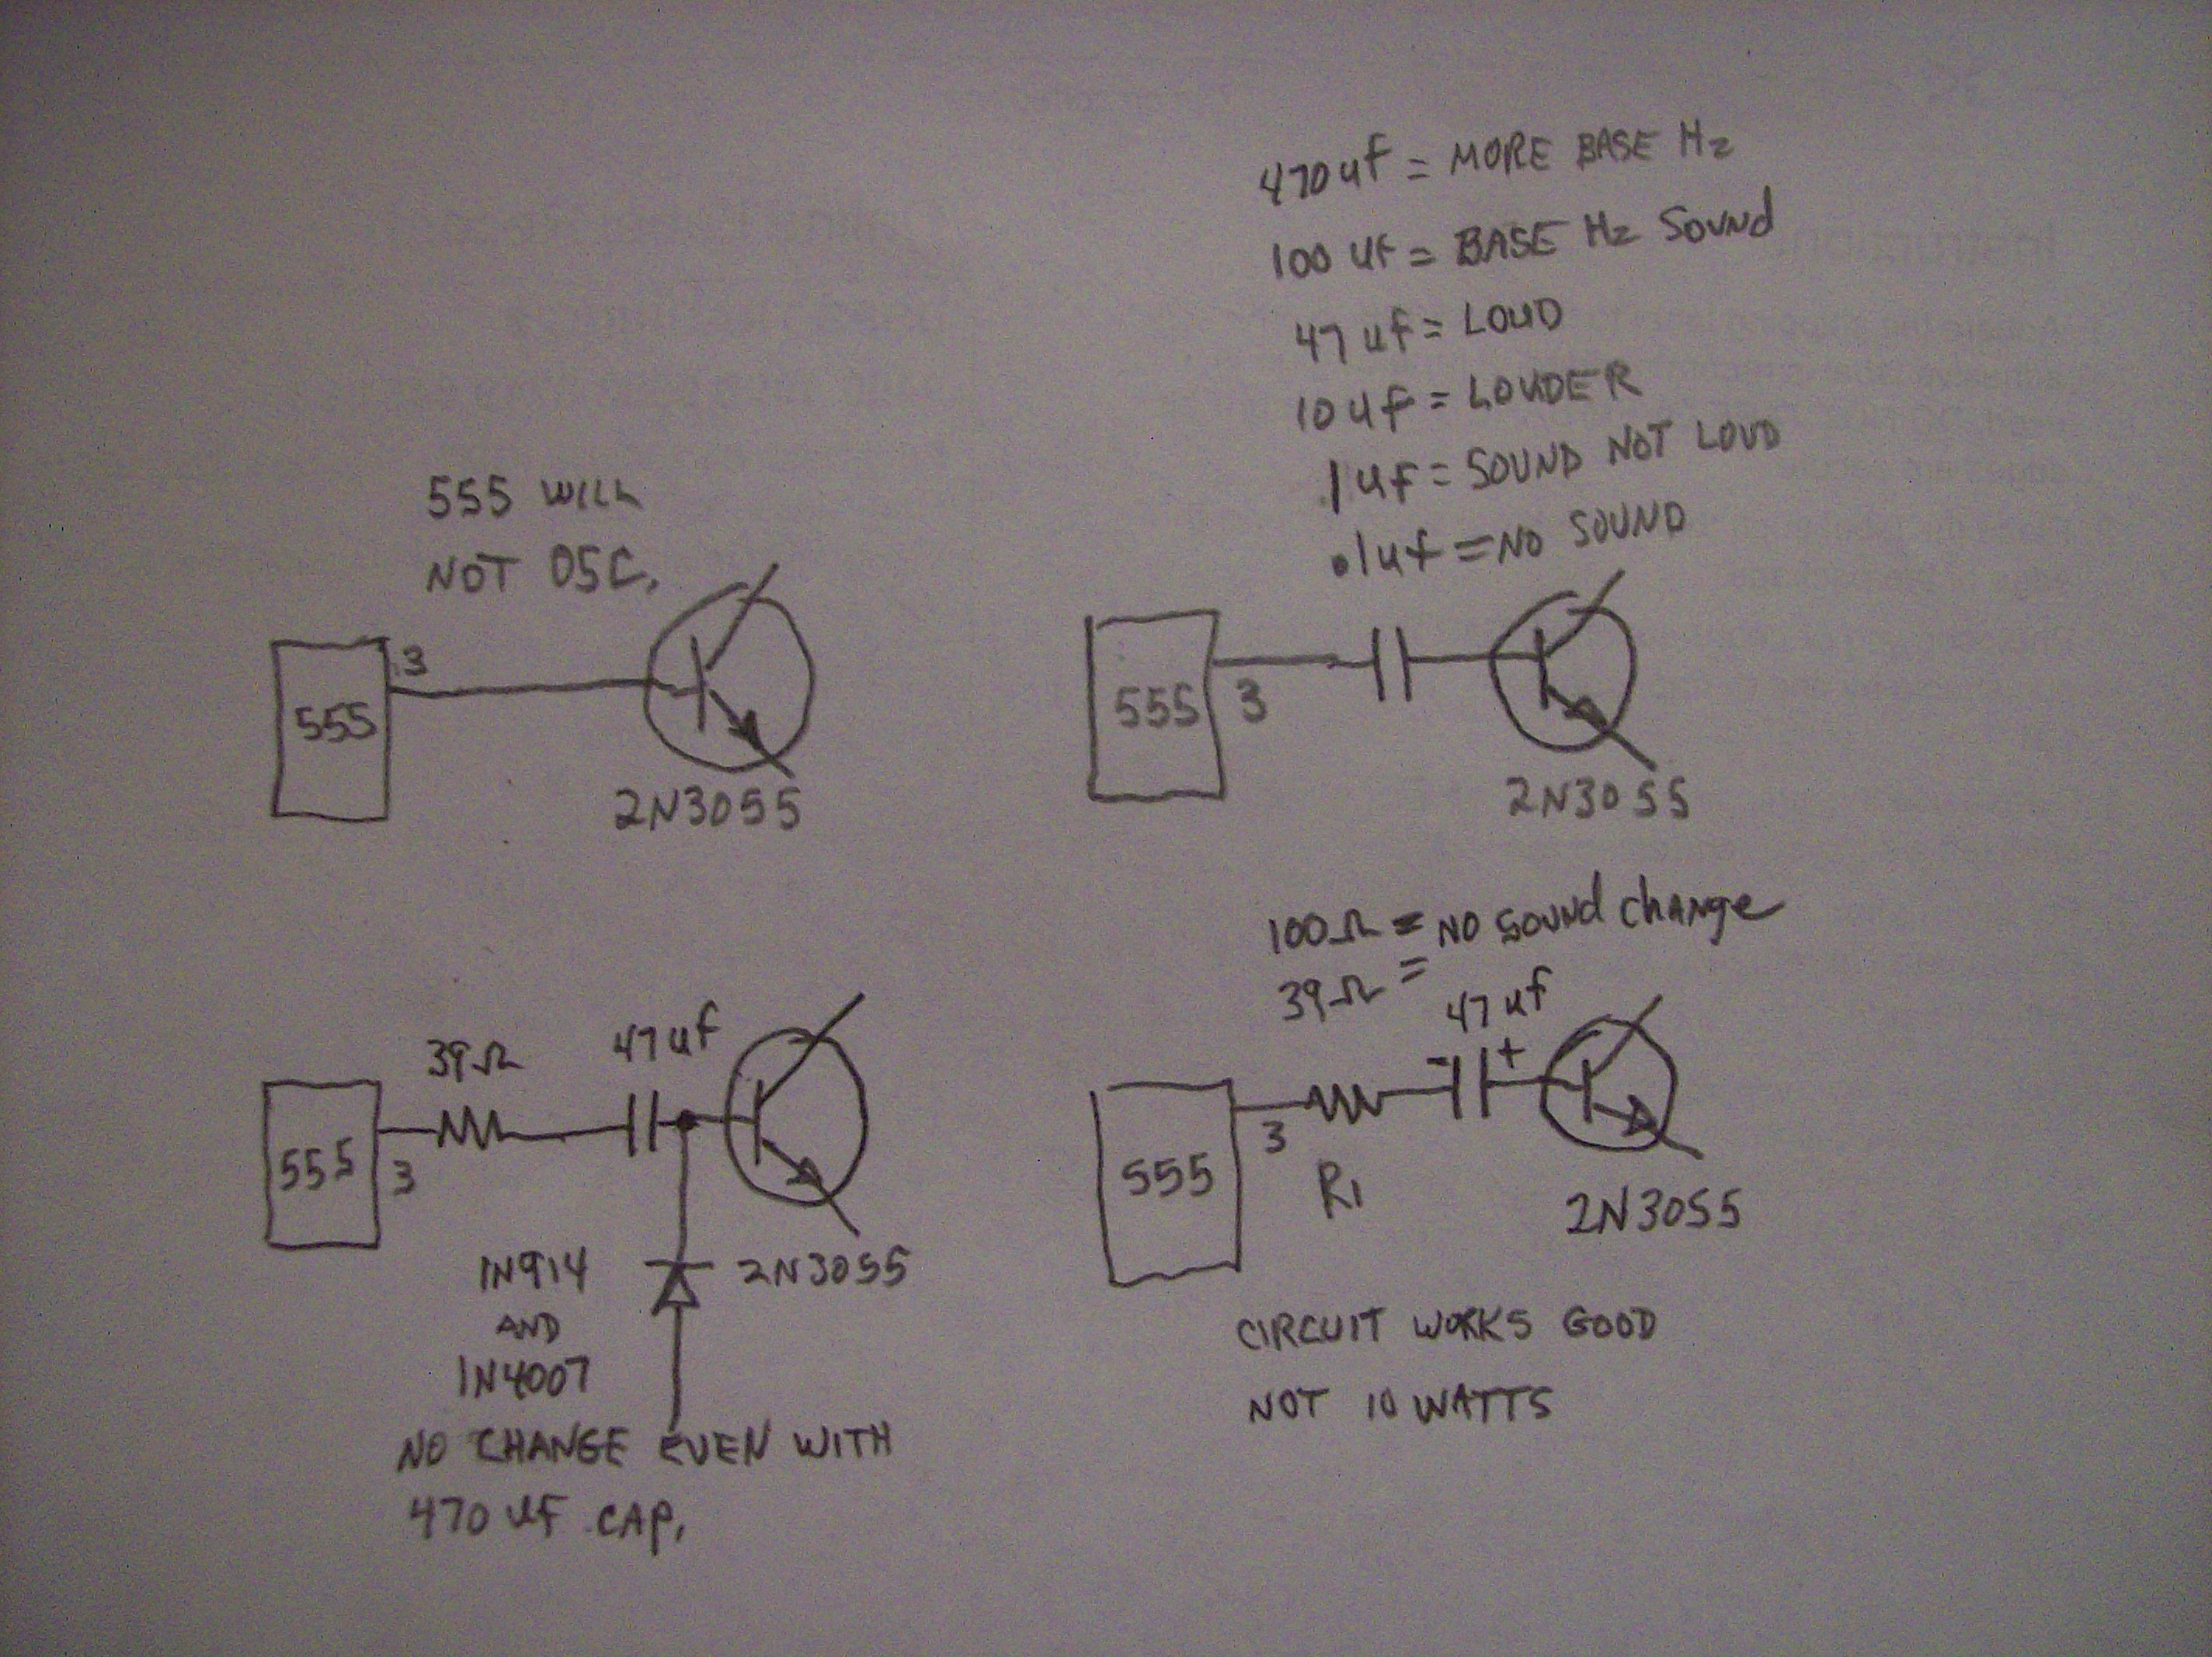 470 uf = MORE BASE Hz
100 uf = BASE Hz Sound
47 uf = LOUD
10 uf = LOUDER
1 uf = SOUND NOT LOUD
.1uf = NO SOUND
555 WILL
NOT OSC.
3
555
2N3055
555
3
2N3055
39Ω
47 uf
555
3
1N914
AND
1N4007
2N3055
NO CHANGE EVEN WITH
470 uf CAP.
100Ω = NO SOUNd ChANge
39Ω =
47 uf
- +
555
3
R1
2N3055
CIRCUIT WORKS GOOD
NOT 10 WATTS